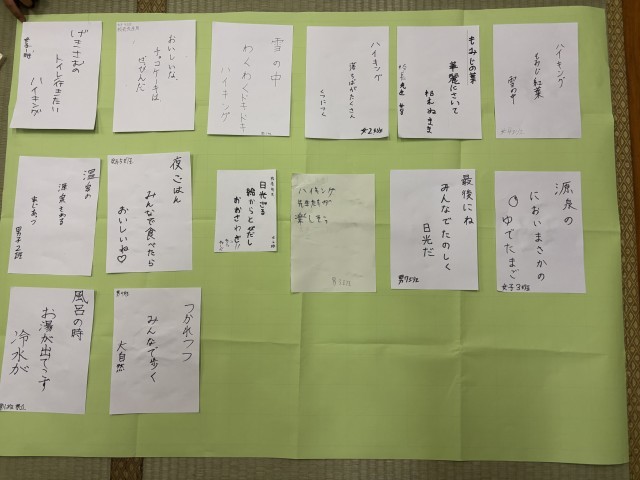 げきさむの
トイレ行きたい
ハイキング
おいしいな、
チョコケーキは
ぜっぴんだ
雪の中
わくわくドキドキ
ハイキング
ハイキング
落ちばがたくさん
くつにつく
女2班
もみじの葉
華麗にさいて
枯れねまき
ハイキング
もみじ紅葉
雪の中
温泉の
源泉
男子2班
夜ごはん
みんなで食べたら
おいしいね♡
日光さる
ハイキング
楽しそう
最後にね
みんなでたのしく
日光だ
男7班
源泉の
においまさかの
ゆでたまご
女子3班
風呂の時
お湯が出てこず
冷水が
つかれつつ
みんなで歩く
大自然